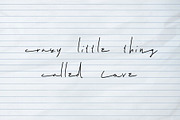 crazy little thing
called love